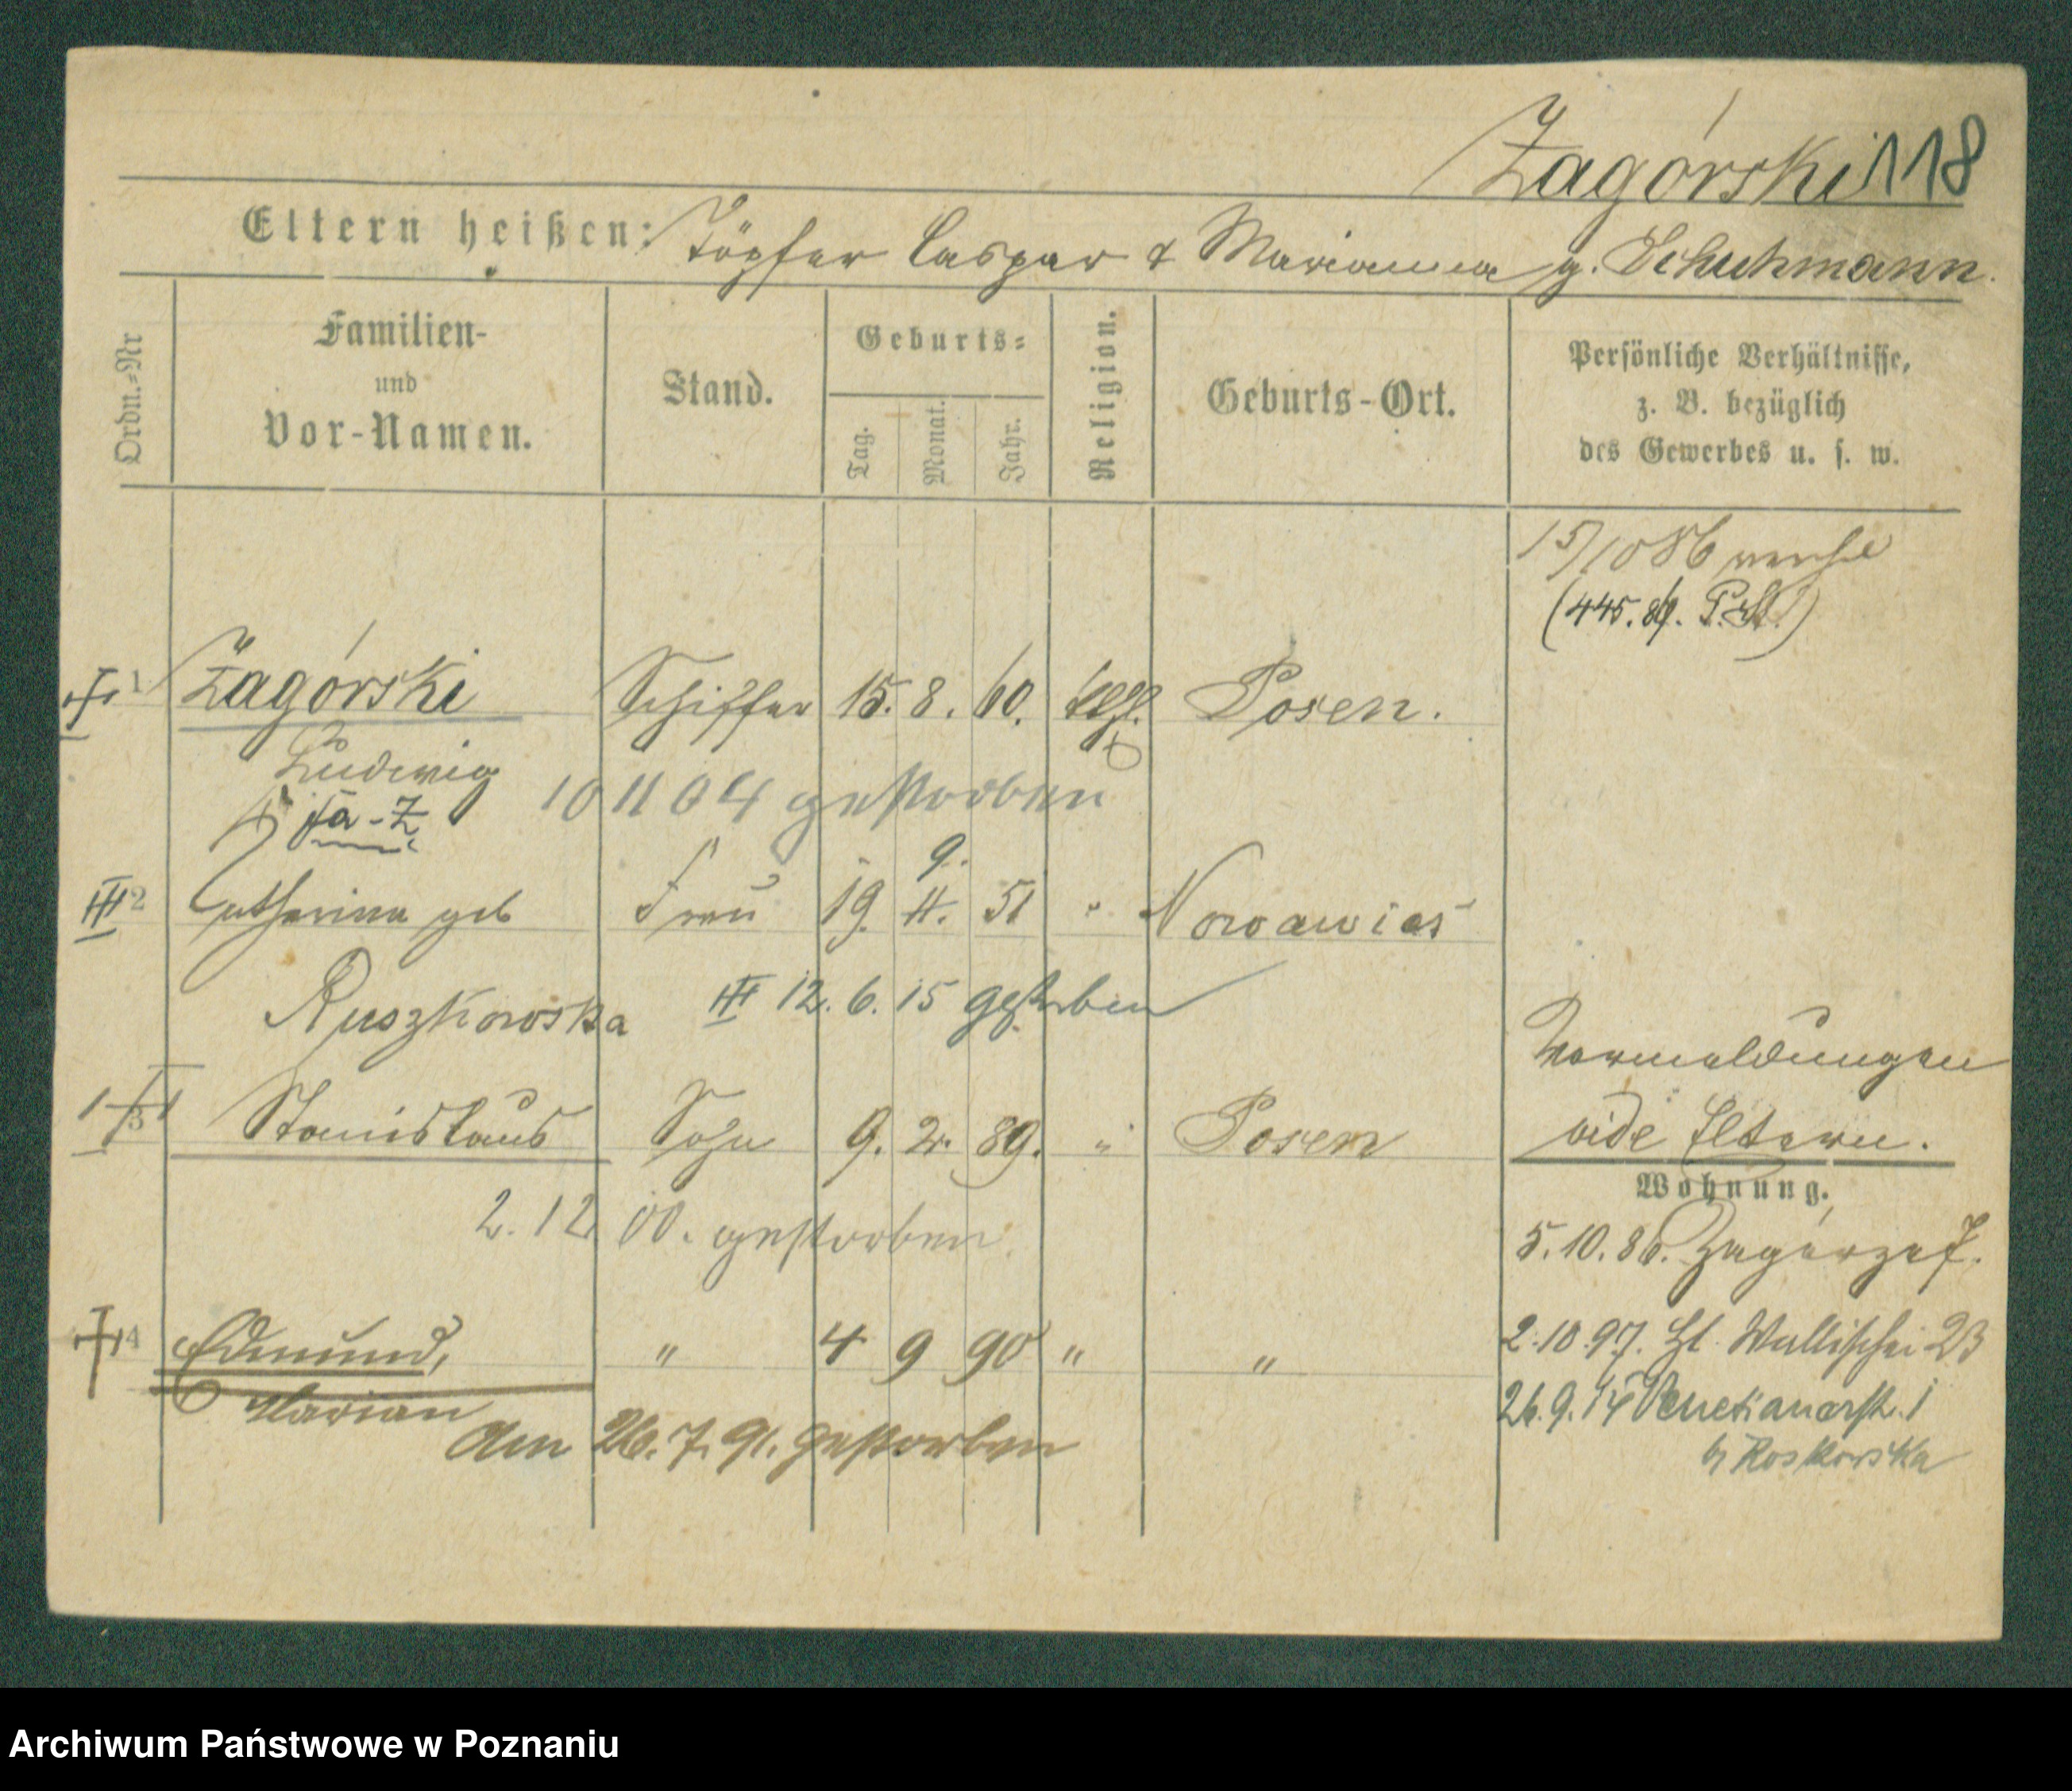 Zagórski 118
Eltern heißen: Töpfer Caspar & Marianna g. Schuhmann.
Ordn.-Nr
Familien-
und
Vor-Namen.
Stand.
Geburts-
Tag.
Monat.
Jahr.
Religion.
Geburts-Ort.
Persönliche Verhältnisse,
z. B. bezüglich
des Gewerbes u. s. w.
15/10 86
(445. 89.
1 Zagórski Schiffer 15. 8. 60. Posen.
Ludwig
10 11 04 gestorben
9.
2 Catharina geb Frau 19. 11. 51 " Nowawies
Ruszkowska III 12. 6. 15 gestorben
Vormeldungen
3 Stanislaus Sohn 9. 2. 89. " Posen vide Eltern.
Wohnung.
2. 12 00. gestorben
5. 10. 86. Zagorze 7.
4 Edmund, " 4 9 90 " " 2. 10. 97. Wallischei 23
Marian
26. 9. 14 Venetianerstr. 1
am 26. 7. 91. gestorben
b Roskowska
Archiwum Państwowe w Poznaniu